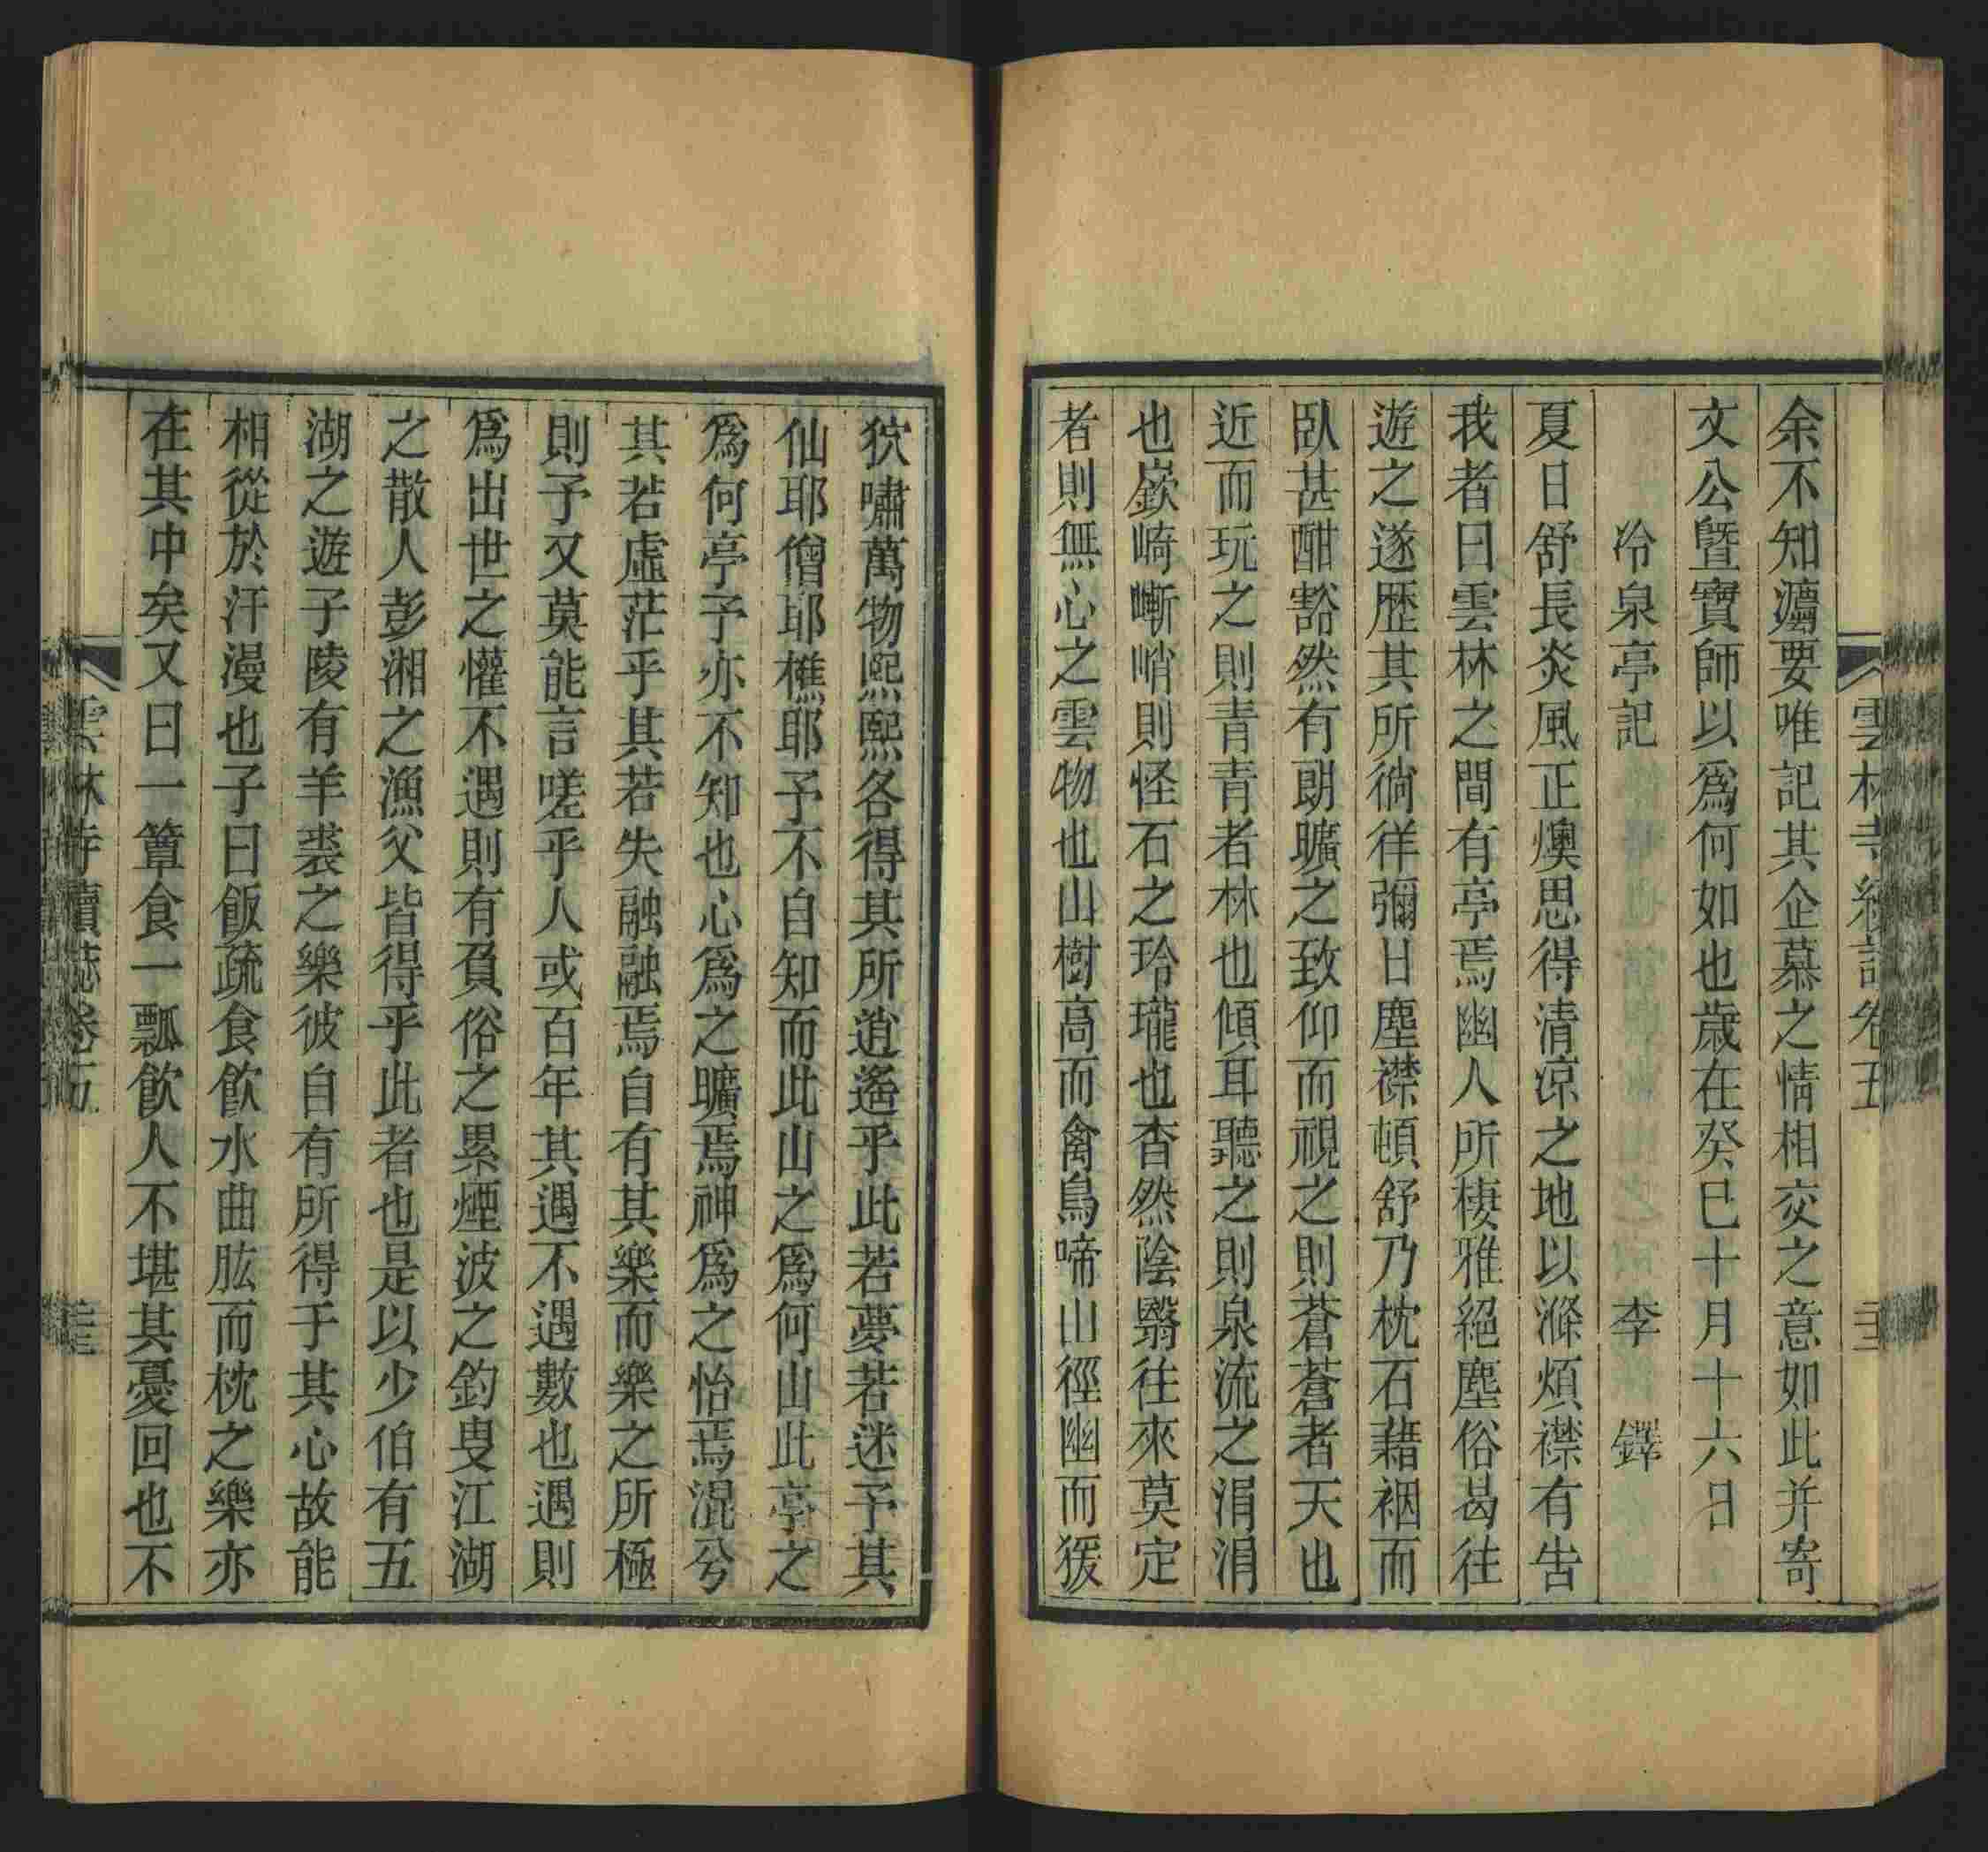 雲林寺續誌卷五
余不知瀘要唯記其企慕之情相交之意如此并寄
文公暨寶師以爲何如也歲在癸巳十月十六日
冷泉亭記 李鐸
夏日舒長炎風正燠思得清涼之地以滌煩襟有告
我者曰雲林之間有亭焉幽人所棲雅絕塵俗曷往
遊之遂歴其所徜徉彌日塵襟頓舒乃枕石藉裀而
臥甚酣豁然有朗曠之致仰而視之則蒼蒼者天也
近而玩之則青青者林也傾耳聽之則泉流之涓涓
也嶔崎嶄峭則怪石之玲瓏也杳然陰翳往來莫定
者則無心之雲物也山樹高而禽鳥啼山徑幽而猨
狖嘯萬物熈熈各得其所逍遙乎此若夢若迷予其
仙耶僧耶樵耶予不自知而此山之爲何山此亭之
爲何亭予亦不知也心爲之曠焉神爲之怡焉混兮
其若虛茫乎其若失融融焉自有其樂而樂之所極
則予又莫能言嗟乎人或百年其遇不遇數也遇則
爲出世之懽不遇則有負俗之累煙波之釣叟江湖
之散人彭湘之漁父皆得乎此者也是以少伯有五
湖之遊子陵有羊裘之樂彼自有所得于其心故能
相從於汗漫也子曰飯疏食飮水曲肱而枕之樂亦
在其中矣又曰一簞食一瓢飮人不堪其憂回也不
雲林寺續誌卷五